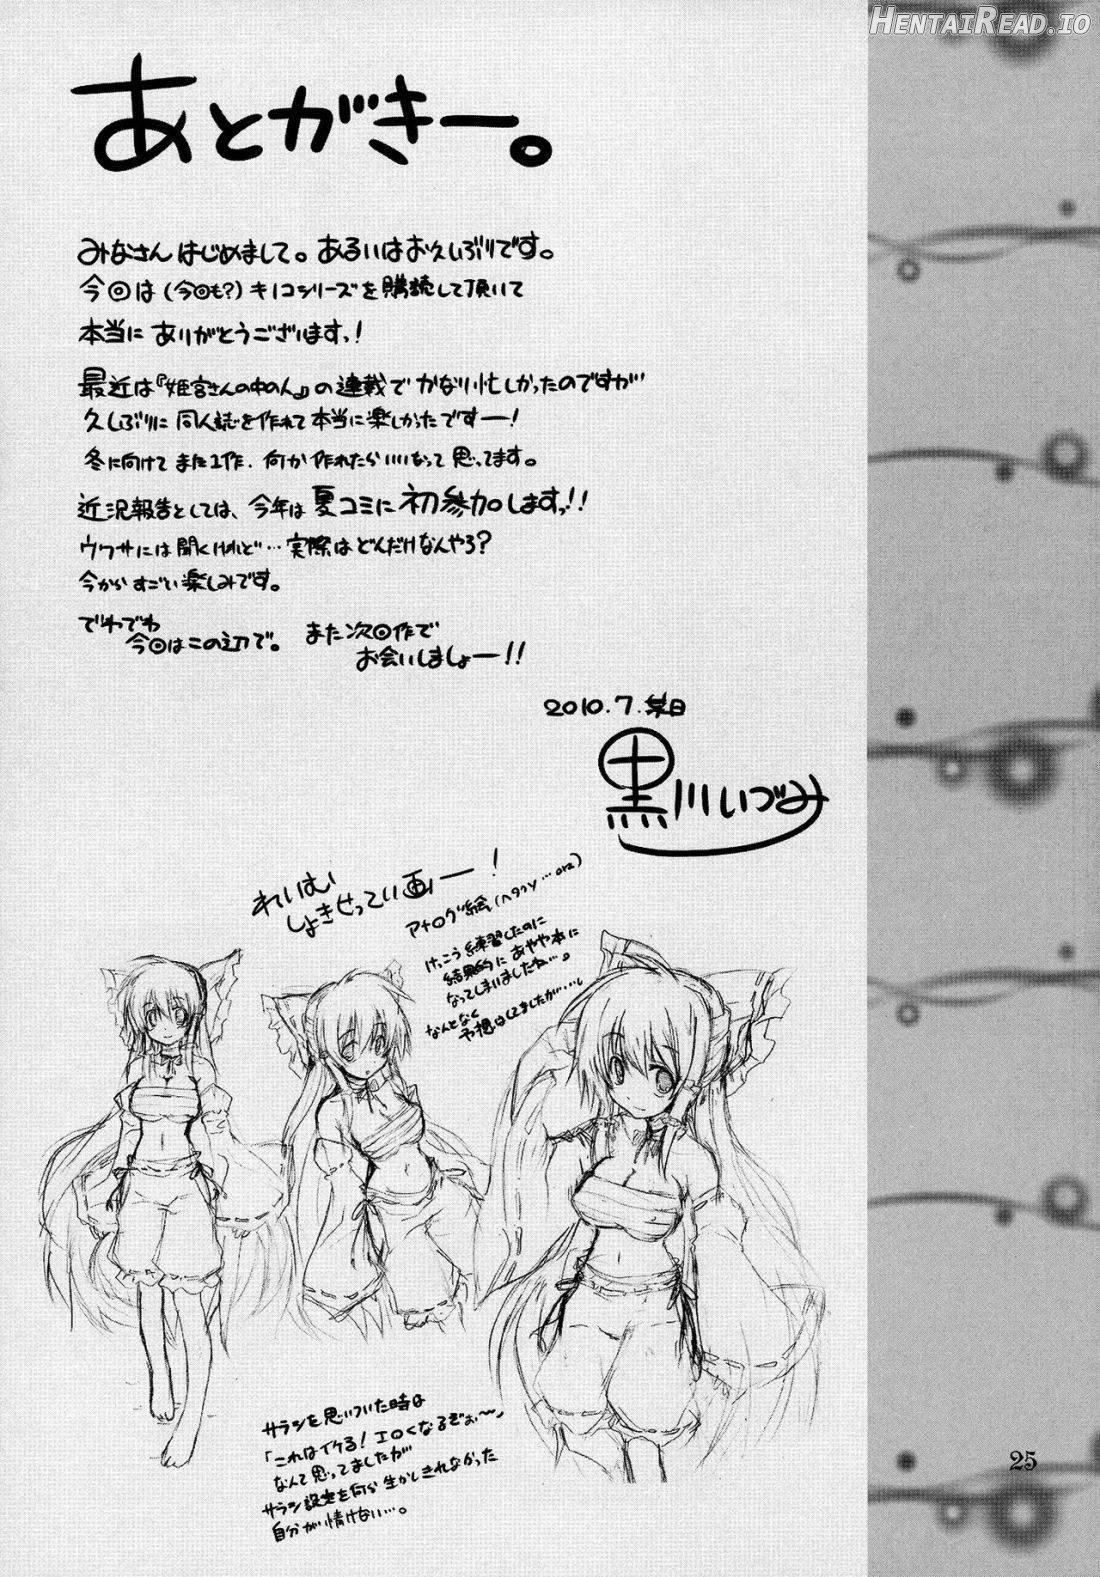 HENTAIREAD.IO
あとがきー。
みなさんはじめまして。あるいはお久しぶりです。
今回は(今回も?)キノコシリーズを購読して頂いて
本当にありがとうございますっ!
最近は『姫宮さんの中の人』の連載でかなり忙しかったのですが
久しぶりに同人誌を作れて本当に楽しかったですー!
冬に向けてまた1作、何か作れたらいいなって思ってます。
近況報告としては、今年は夏コミに初参加しますっ!!
ウワサには聞くけれど…実際はどんだけなんやろ?
今からすごい楽しみです。
でわでわ
今回はこの辺で。
また次回作で
お会いしましょー!!
2010.7.某日
黒川いづみ
れいむ
しょきせってい画ー!
アナログ絵(ヘタッy…orz)
けっこう練習したのに
結果的にあやや本に
なってしまいましたね…。
なんとなく
予想はしてましたが…
サラシを思いついた時は
「これはイケる!エロくなるぞぉ〜」
なんて思ってましたが
サラシ設定を何ら生かしきれなかった
自分が情けない…。
25